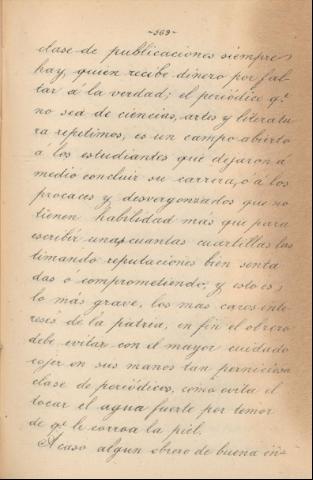 -369-
clase de publicaciones siempre
hay, quien recibe dinero por fal-
tar á la verdad; el periódico q.e
no sea de ciencias, artes y literatu
ra repetimos, es un campo abierto
á los estudiantes que dejaron á
medio concluir su carrera, ó á los
procaces y desvergonzados que no
tienen habilidad más que para
escribir unas cuantas cuartillas las
timando reputaciones bien senta
das ó comprometiendo, y esto es,
lo más grave, los mas caros inte
reses de la patria, en fin el obrero
debe evitar con el mayor cuidado
cojer en sus manos tan perniciosa
clase de periódicos, como evita el
tocar el agua fuerte por temor
de q.e le corroa la piel.
Acaso algun obrero de buena in-